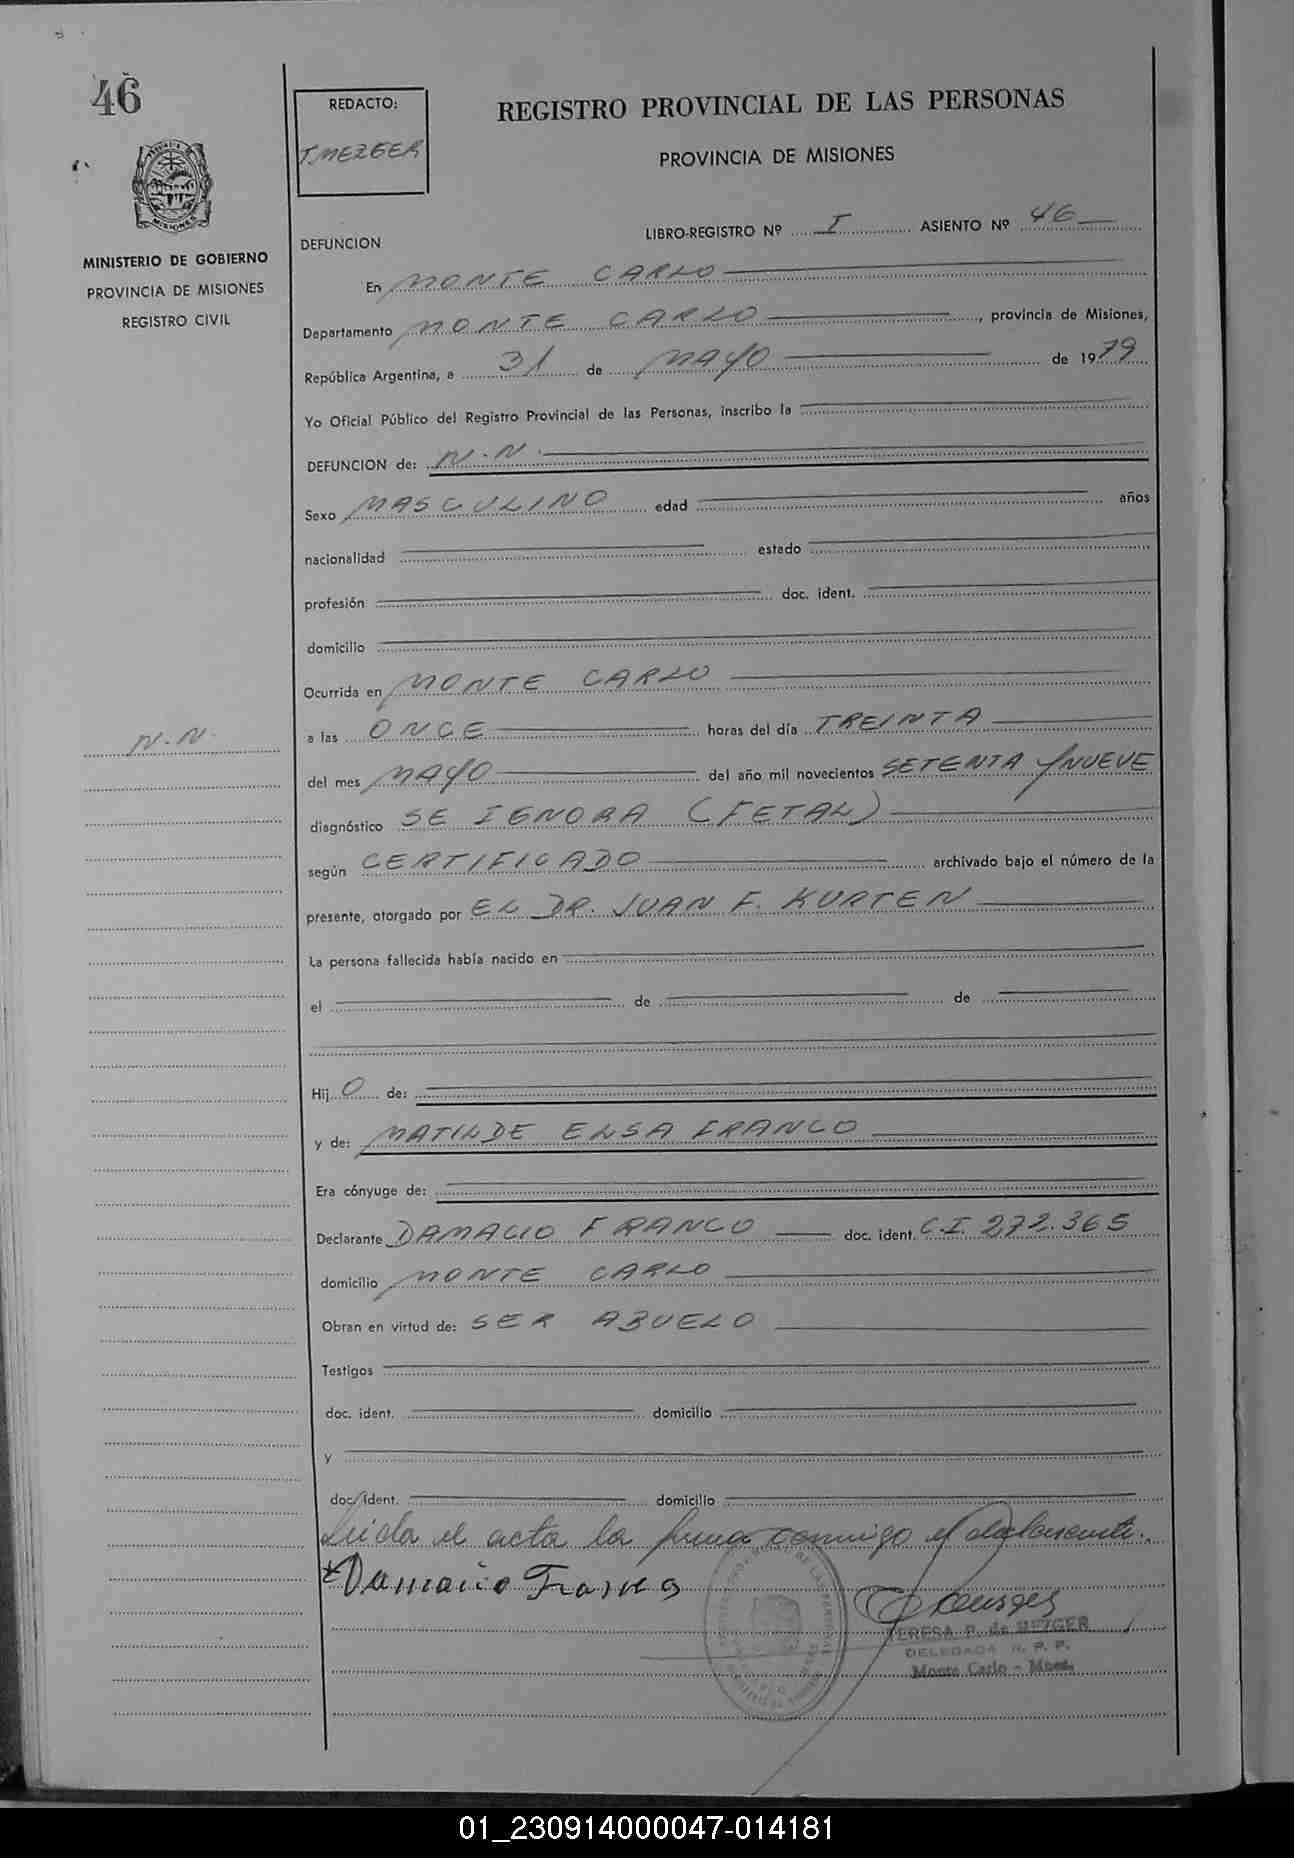 46
REDACTO:
T. MEZGER
REGISTRO PROVINCIAL DE LAS PERSONAS
PROVINCIA DE MISIONES
MISIONES
MINISTERIO DE GOBIERNO
PROVINCIA DE MISIONES
REGISTRO CIVIL
DEFUNCION
LIBRO-REGISTRO Nº I ASIENTO Nº 46
En MONTE CARLO
Departamento MONTE CARLO, provincia de Misiones,
República Argentina, a 31 de MAYO de 1979
Yo Oficial Público del Registro Provincial de las Personas, inscribo la
DEFUNCION de: N.N.
Sexo MASCULINO edad años
nacionalidad estado
profesión doc. ident.
domicilio
Ocurrida en MONTE CARLO
N.N.
a las ONCE horas del día TREINTA
del mes MAYO del año mil novecientos SETENTA Y NUEVE
diagnóstico SE IGNORA (FETAL)
según CERTIFICADO archivado bajo el número de la
presente, otorgado por EL DR. JUAN F. KURTEN
La persona fallecida había nacido en
el de de
Hij O de:
y de: MATILDE ELSA FRANCO
Era cónyuge de:
Declarante DAMACIO FRANCO doc. ident. C.I. 272.365
domicilio MONTE CARLO
Obran en virtud de: SER ABUELO
Testigos
doc. ident. domicilio
y
doc. ident. domicilio
Leida el acta la firma conmigo el declarante.
Damacio Franco
TERESA P. de MEZGER
DELEGADA R. P. P.
Monte Carlo - Mnes.
01_230914000047-014181